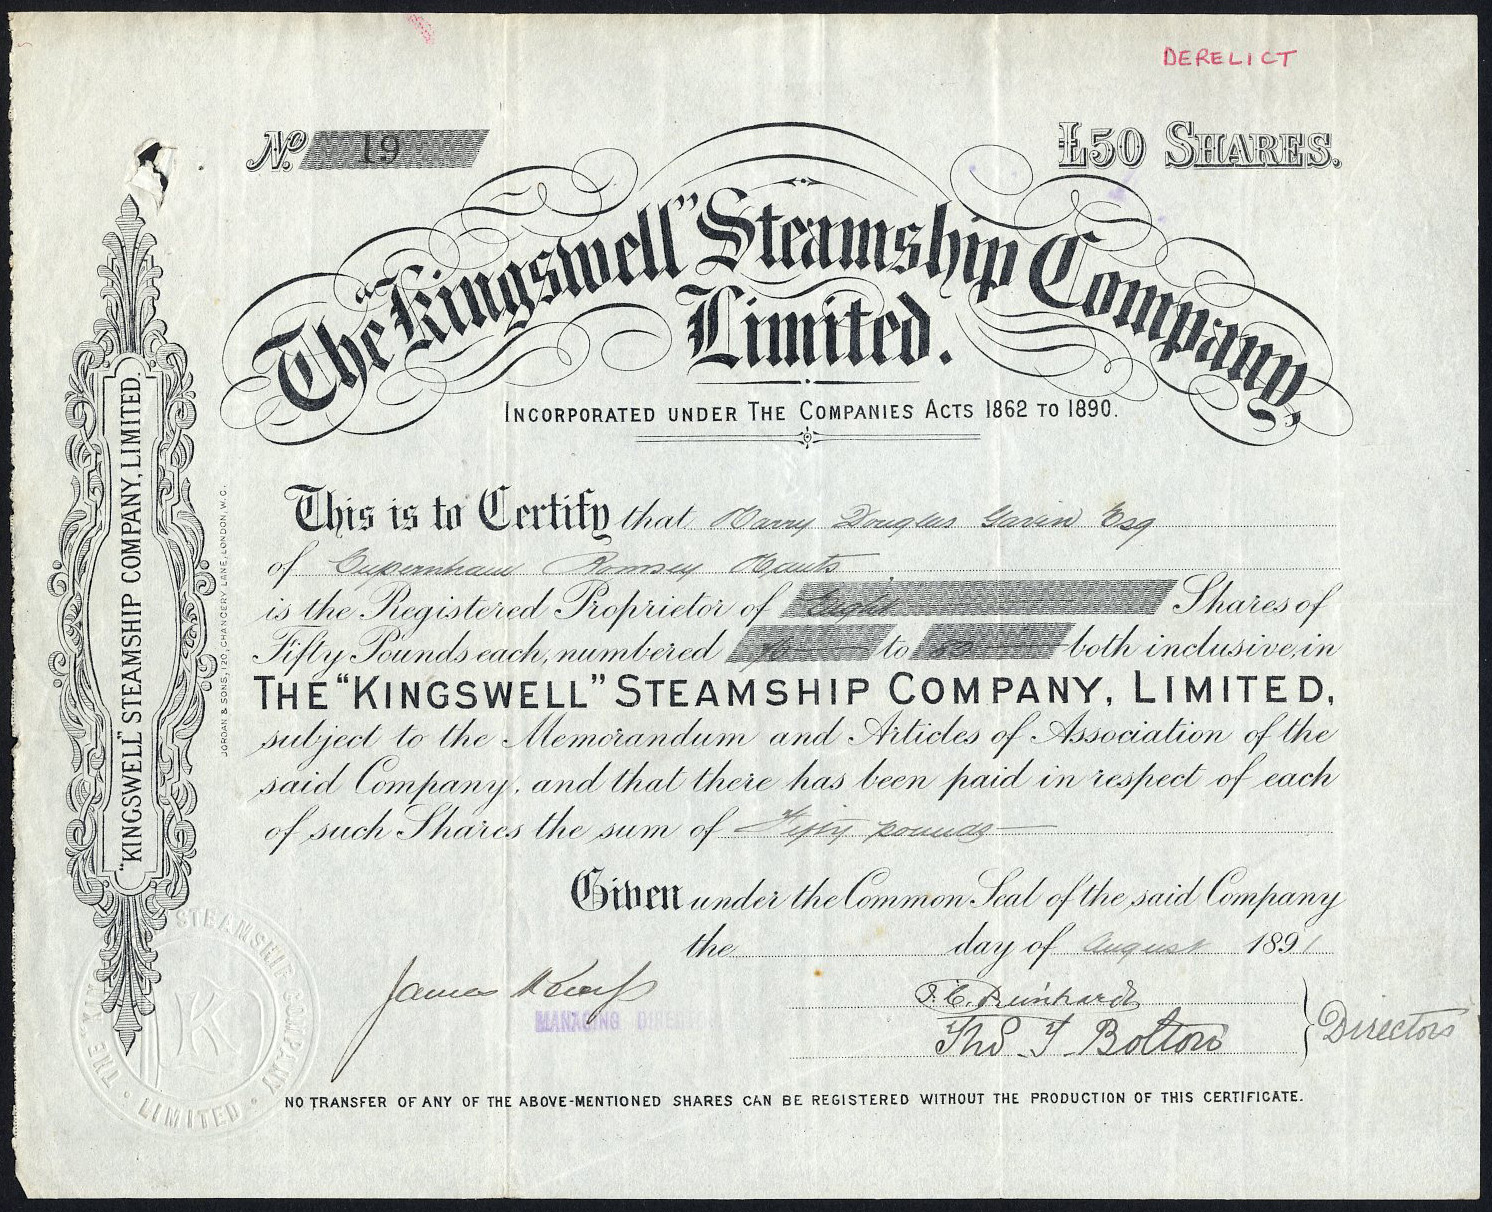 DERELICT
No. 19
£50 SHARES.
The "Kingswell" Steamship Company,
Limited.
INCORPORATED UNDER THE COMPANIES ACTS 1862 TO 1890.
This is to Certify that Harry Douglas Gavin Esq
of Romsey Hants
is the Registered Proprietor of Eight Shares of
Fifty Pounds each, numbered to both inclusive, in
THE "KINGSWELL" STEAMSHIP COMPANY, LIMITED,
subject to the Memorandum and Articles of Association of the
said Company, and that there has been paid in respect of each
of such Shares the sum of Fifty pounds
Given under the Common Seal of the said Company
the day of August 1891
James
MANAGING DIRECTOR
Thos T. Bolton
Directors
NO TRANSFER OF ANY OF THE ABOVE-MENTIONED SHARES CAN BE REGISTERED WITHOUT THE PRODUCTION OF THIS CERTIFICATE.
"KINGSWELL" STEAMSHIP COMPANY, LIMITED.
JORDAN & SONS, 120, CHANCERY LANE, LONDON, W.C.
THE KINGSWELL STEAMSHIP COMPANY LIMITED
K